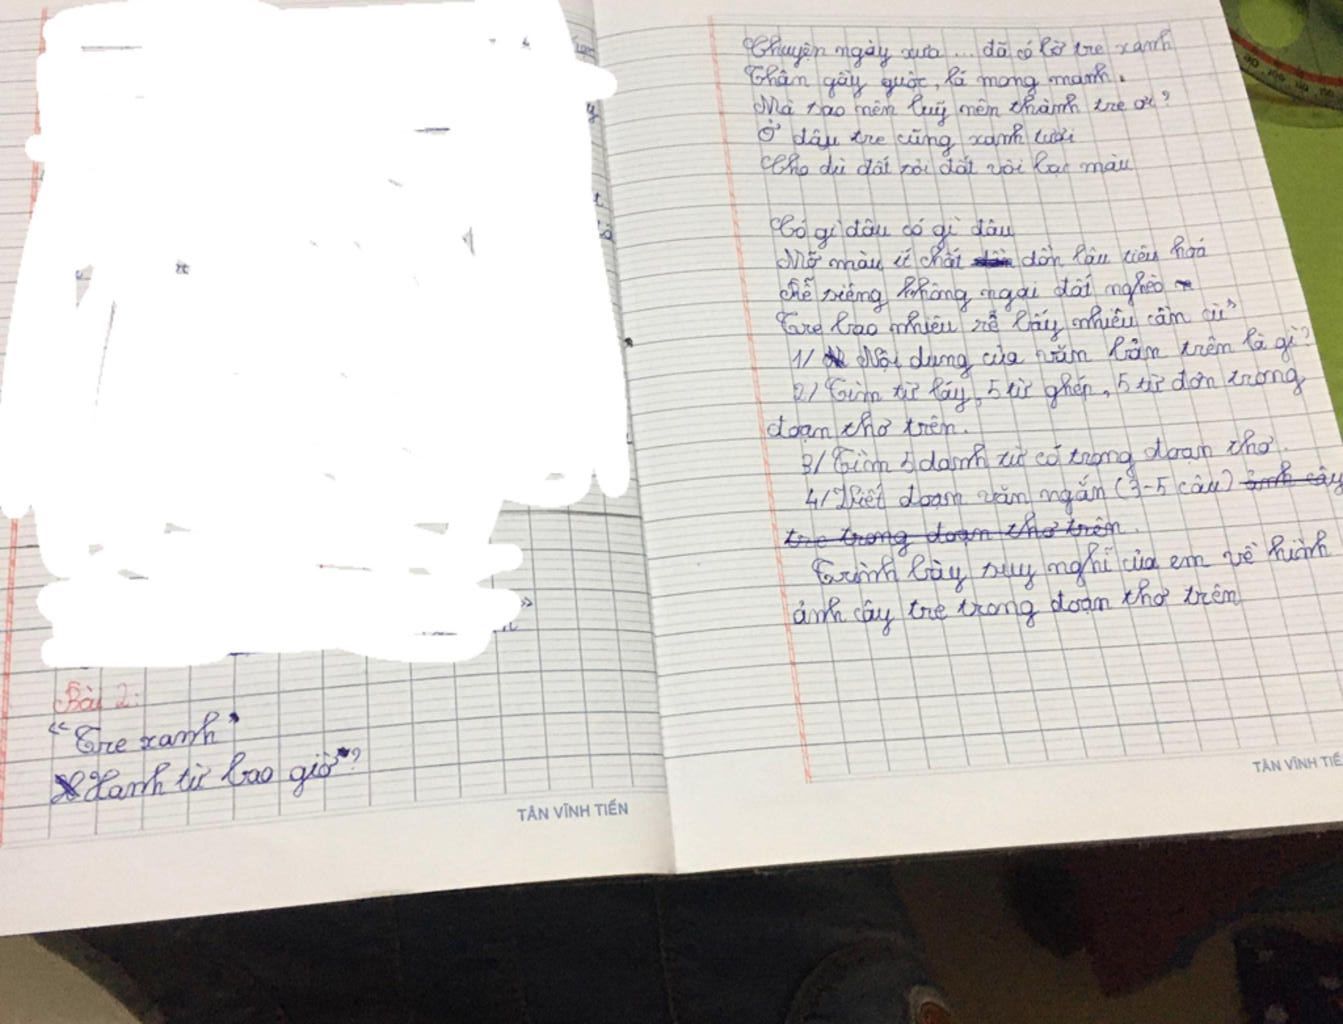 Bài 2:
“Tre xanh”
Xanh từ bao giờ”?
TÂN VĨNH TIẾN
Chuyện ngày xưa... đã có bờ tre xanh
Thân gầy guộc, lá mong manh.
Mà sao nên luỹ nên thành tre ơi?
Ở đâu tre cũng xanh tươi
Cho dù đất sỏi đất vôi bạc màu
Có gì đâu có gì đâu
Mỡ màu ít chất dồn lâu
Rễ siêng không ngại đất nghèo
Tre bao nhiêu rễ bấy nhiêu cần cù”
1/ Nội dung của văn bản trên là gì?
2/ Tìm từ láy, 5 từ ghép, 5 từ đơn trong
đoạn thơ trên.
3/ Tìm 5 danh từ có trong đoạn thơ.
4/ Viết đoạn văn ngắn (3-5 câu) ảnh cây
tre trong đoạn thơ trên.
Trình bày suy nghĩ của em về hình
ảnh cây tre trong đoạn thơ trên
TÂN VĨNH TIẾ